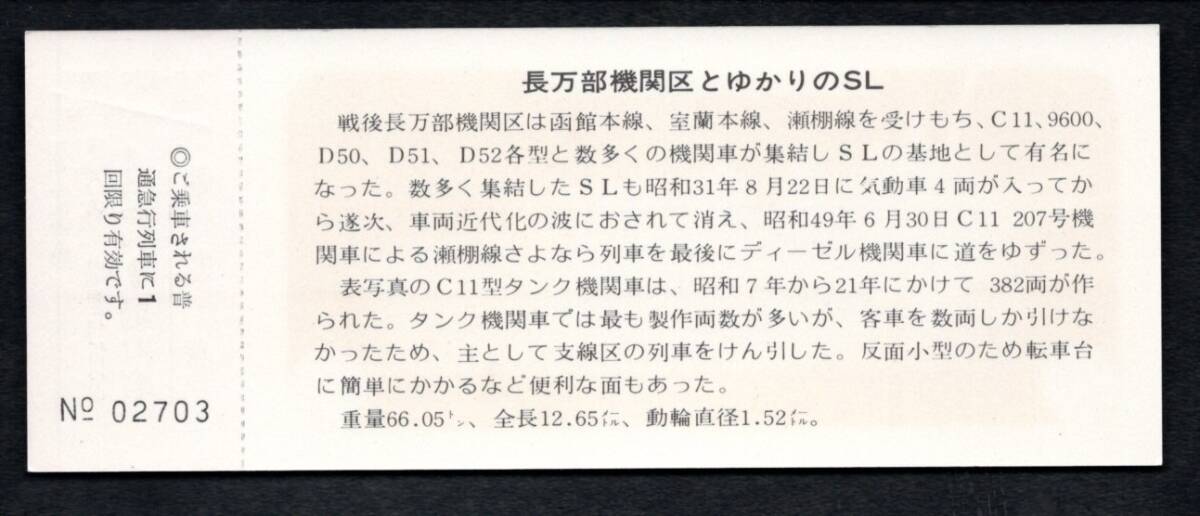 長万部機関区とゆかりのSL
戦後長万部機関区は函館本線、室蘭本線、瀬棚線を受けもち、C11、9600、
D50、D51、D52各型と数多くの機関車が集結しSLの基地として有名に
なった。数多く集結したSLも昭和31年8月22日に気動車4両が入ってか
ら逐次、車両近代化の波におされて消え、昭和49年6月30日C11 207号機
関車による瀬棚線さよなら列車を最後にディーゼル機関車に道をゆずった。
表写真のC11型タンク機関車は、昭和7年から21年にかけて 382両が作
られた。タンク機関車では最も製作両数が多いが、客車を数両しか引けな
かったため、主として支線区の列車をけん引した。反面小型のため転車台
に簡単にかかるなど便利な面もあった。
重量66.05トン、全長12.65メートル、動輪直径1.52メートル。
◎ご乗車される普
通急行列車に1
回限り有効です。
No 02703